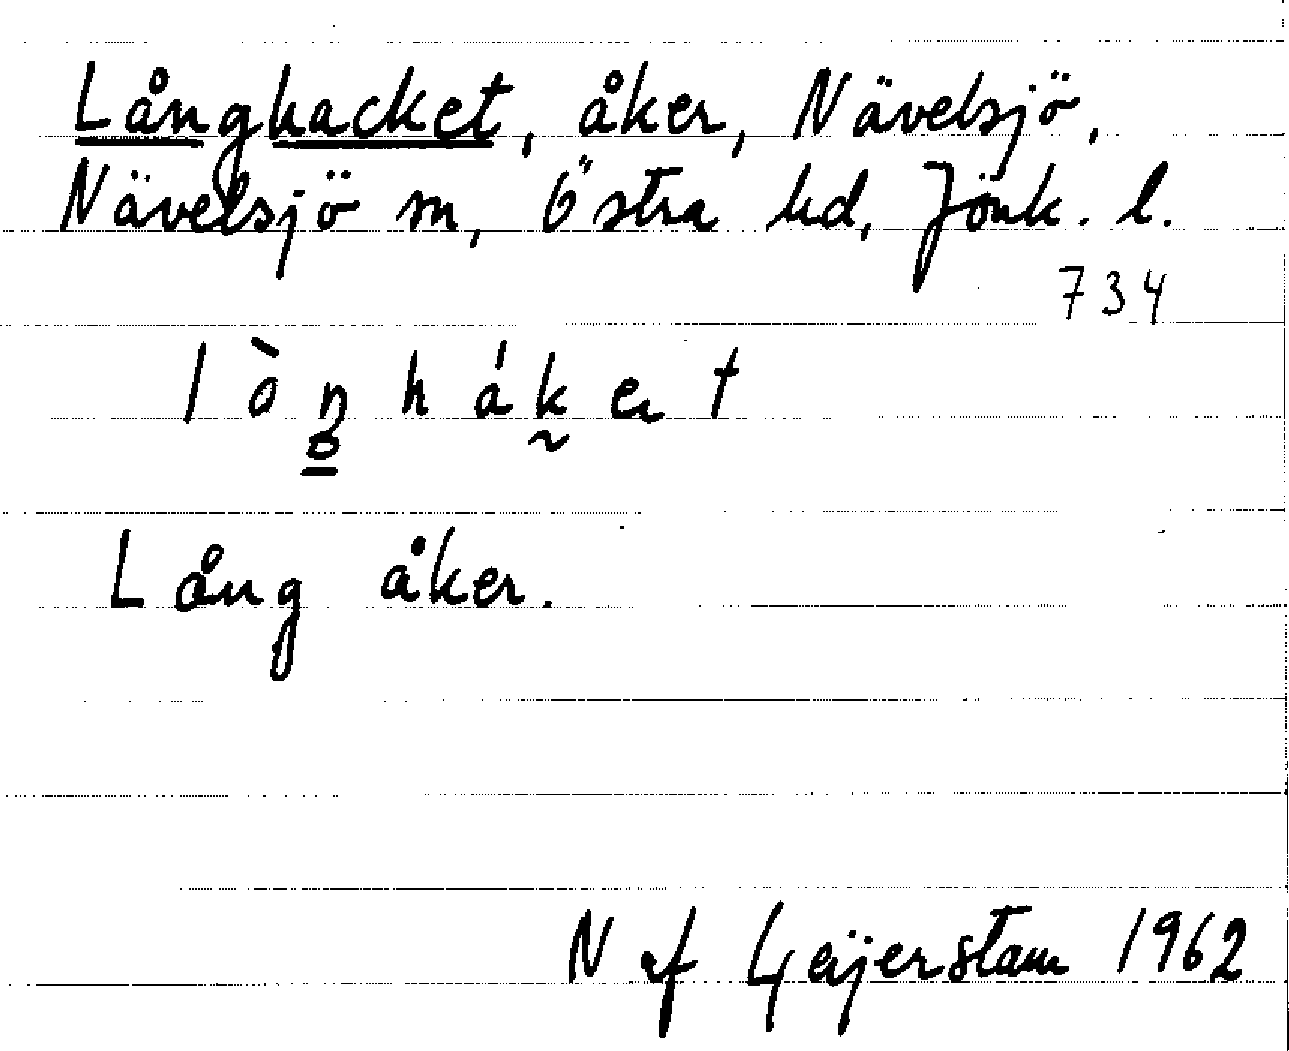 Långhacket, åker, Nävelsjö,
Nävelsjö sn, Östra hd, Jönk. l.
734
lòŋháket
Lång åker.
N af Geijerstam 1962